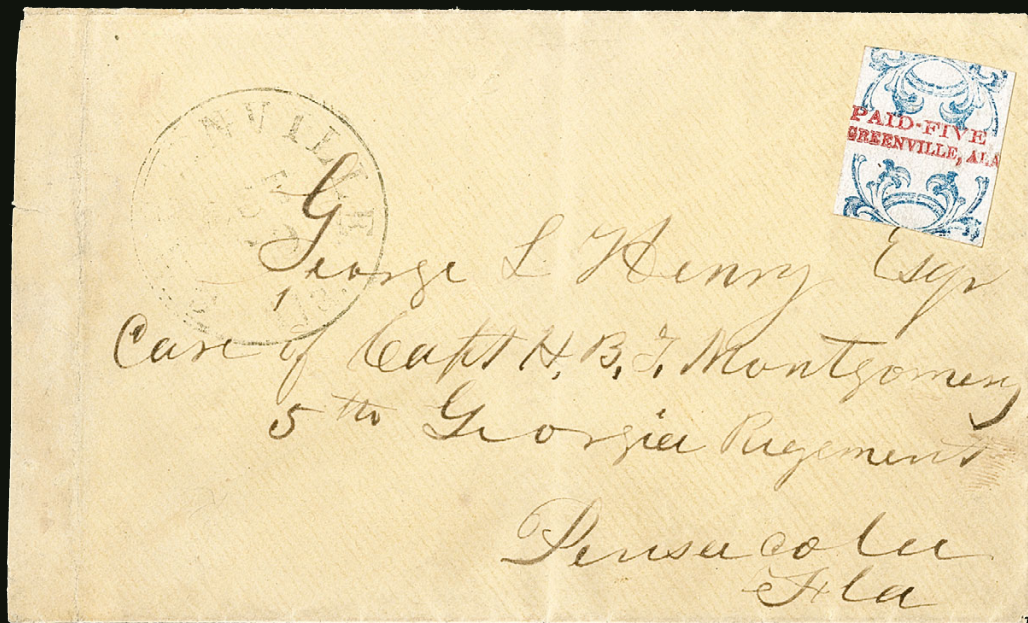 PAID-FIVE
GREENVILLE, ALA
NVILLE
George L Henry Esqr
Care of Capt H. B. T. Montgomery
5th Georgia Regement
Pensacola
Fla